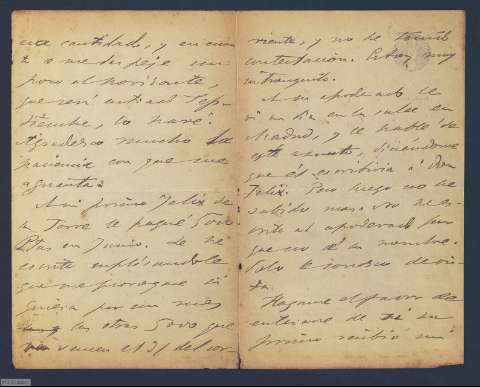 una cantidad, y en cuan
to me despeje un
poco el horizonte,
que será entrado Sep-
tiembre, lo haré.
Agradezco mucho la
paciencia con que me
aguanta.
A mi primo Felix de
la Torre le pagué 5000
Ptas en Junio. Le he
escrito suplicandole
que me prorrogue si
quiera por un mes
las otras 5000 que
vencen el 31 del cor-
riente, y no he tenido
contestación. Estoy muy
intranquilo.
A su apoderado le
vi un dia en la calle en
Madrid, y le hablé de
este asunto, diciendome
que él escribiria á Don
Felix. Pero luego no he
sabido mas. No he es-
crito al apoderado por
que no sé su nombre.
Solo le conozco de vis-
ta.
Hagame el favor de
enterarse de si su
primo recibió mi